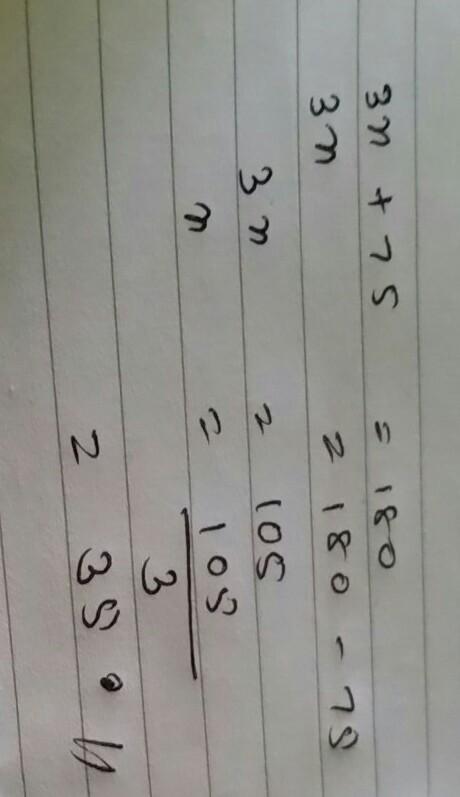 3n + 75 = 180
3n = 180 - 75
3n = 105
n = 105
3
= 35 •